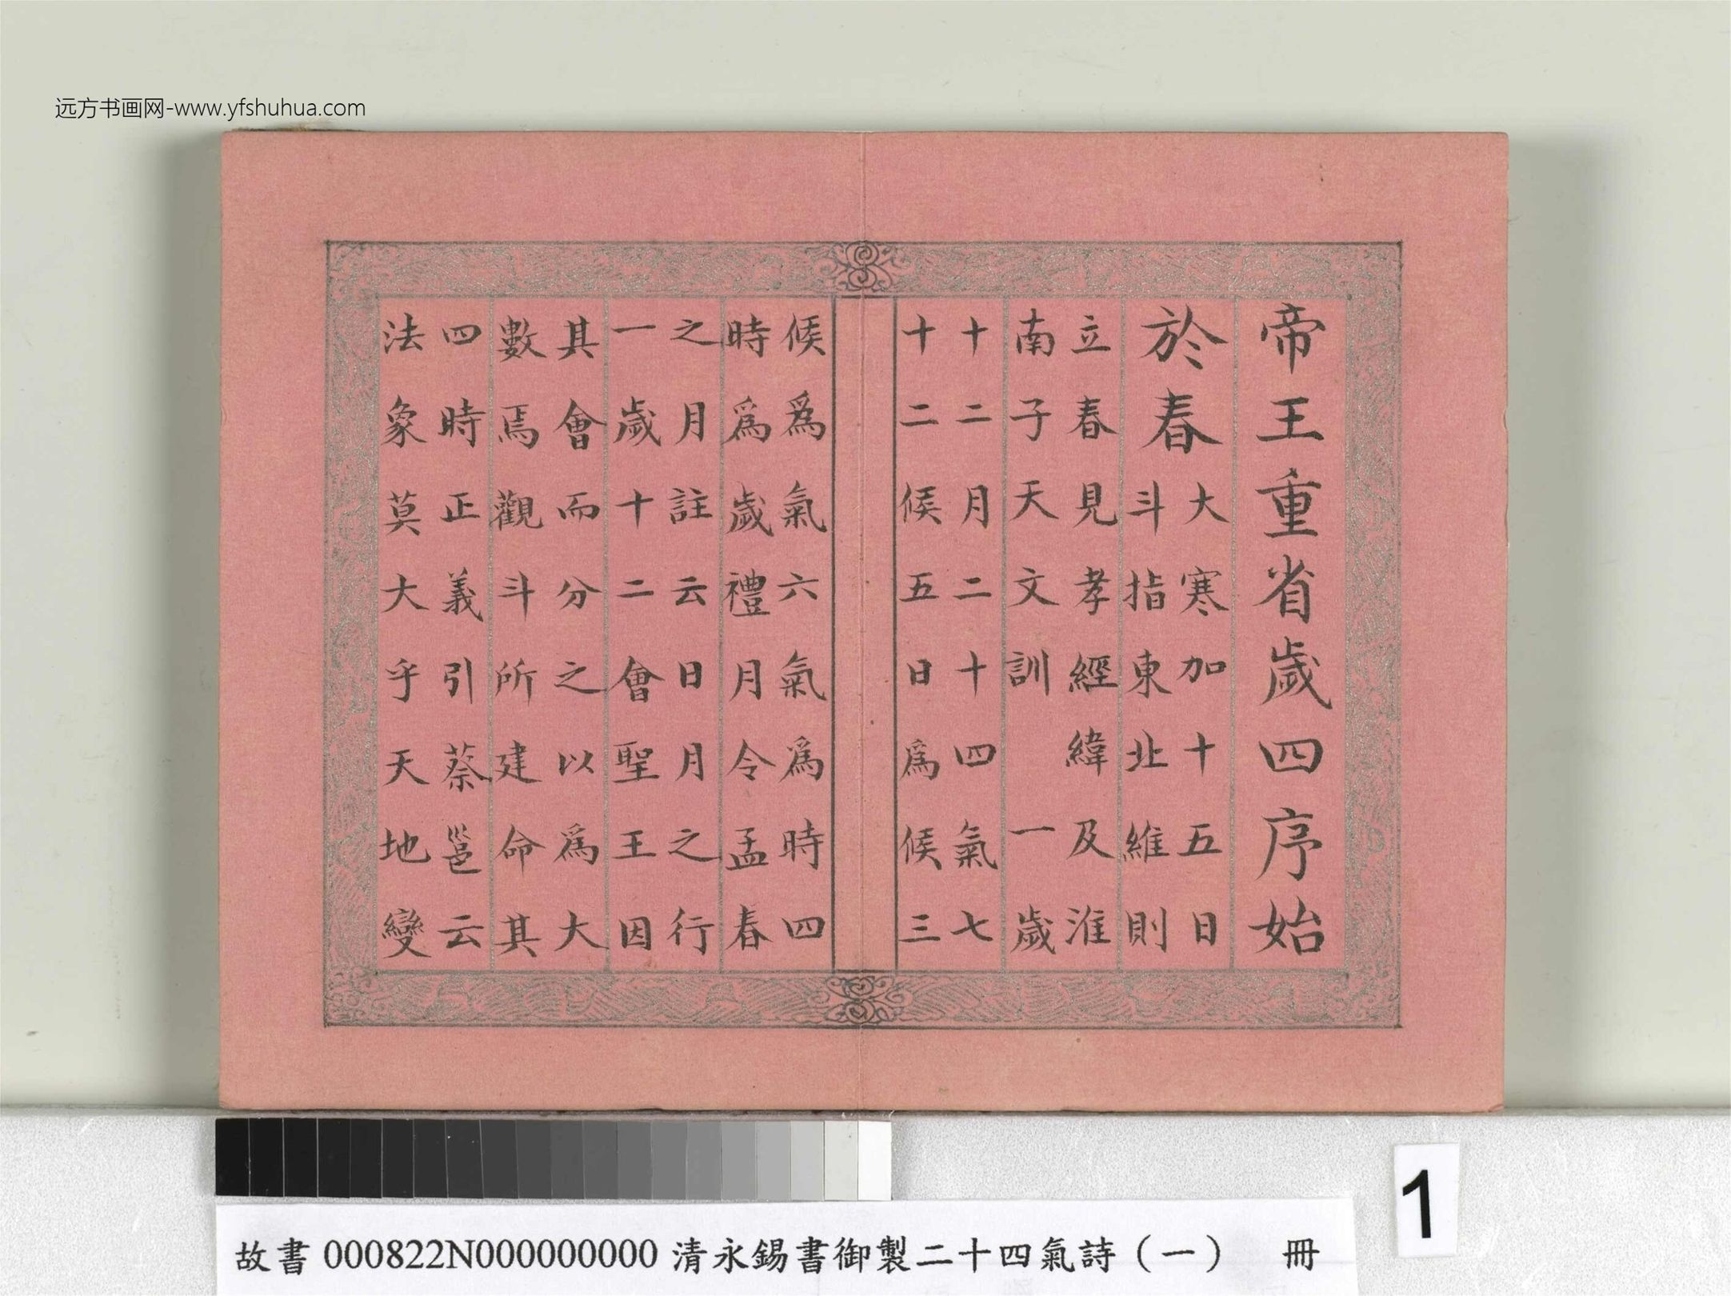 远方书画网-www.yfshuhua.com
帝王重省歲四序始
於春
大寒加十五日
斗指東北維則
立春見孝經緯及淮
南子天文訓 一歲
十二月二十四氣七
十二候五日爲候三
候爲氣六氣爲時四
時爲歲禮月令孟春
之月註云日月之行
一歲十二會聖王因
其會而分之以爲大
數焉觀斗所建命其
四時正義引蔡邕云
法象莫大乎天地變
故書 000822N000000000 清永錫書御製二十四氣詩（一） 冊
1